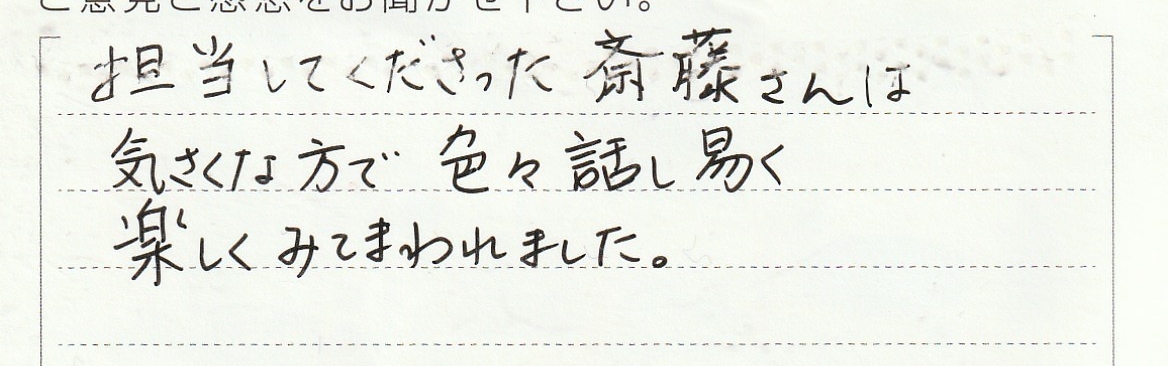 ご意見ご感想をお聞かせ下さい。
担当してくださった 斎藤さんは
気さくな方で 色々話し易く
楽しくみてまわれました。